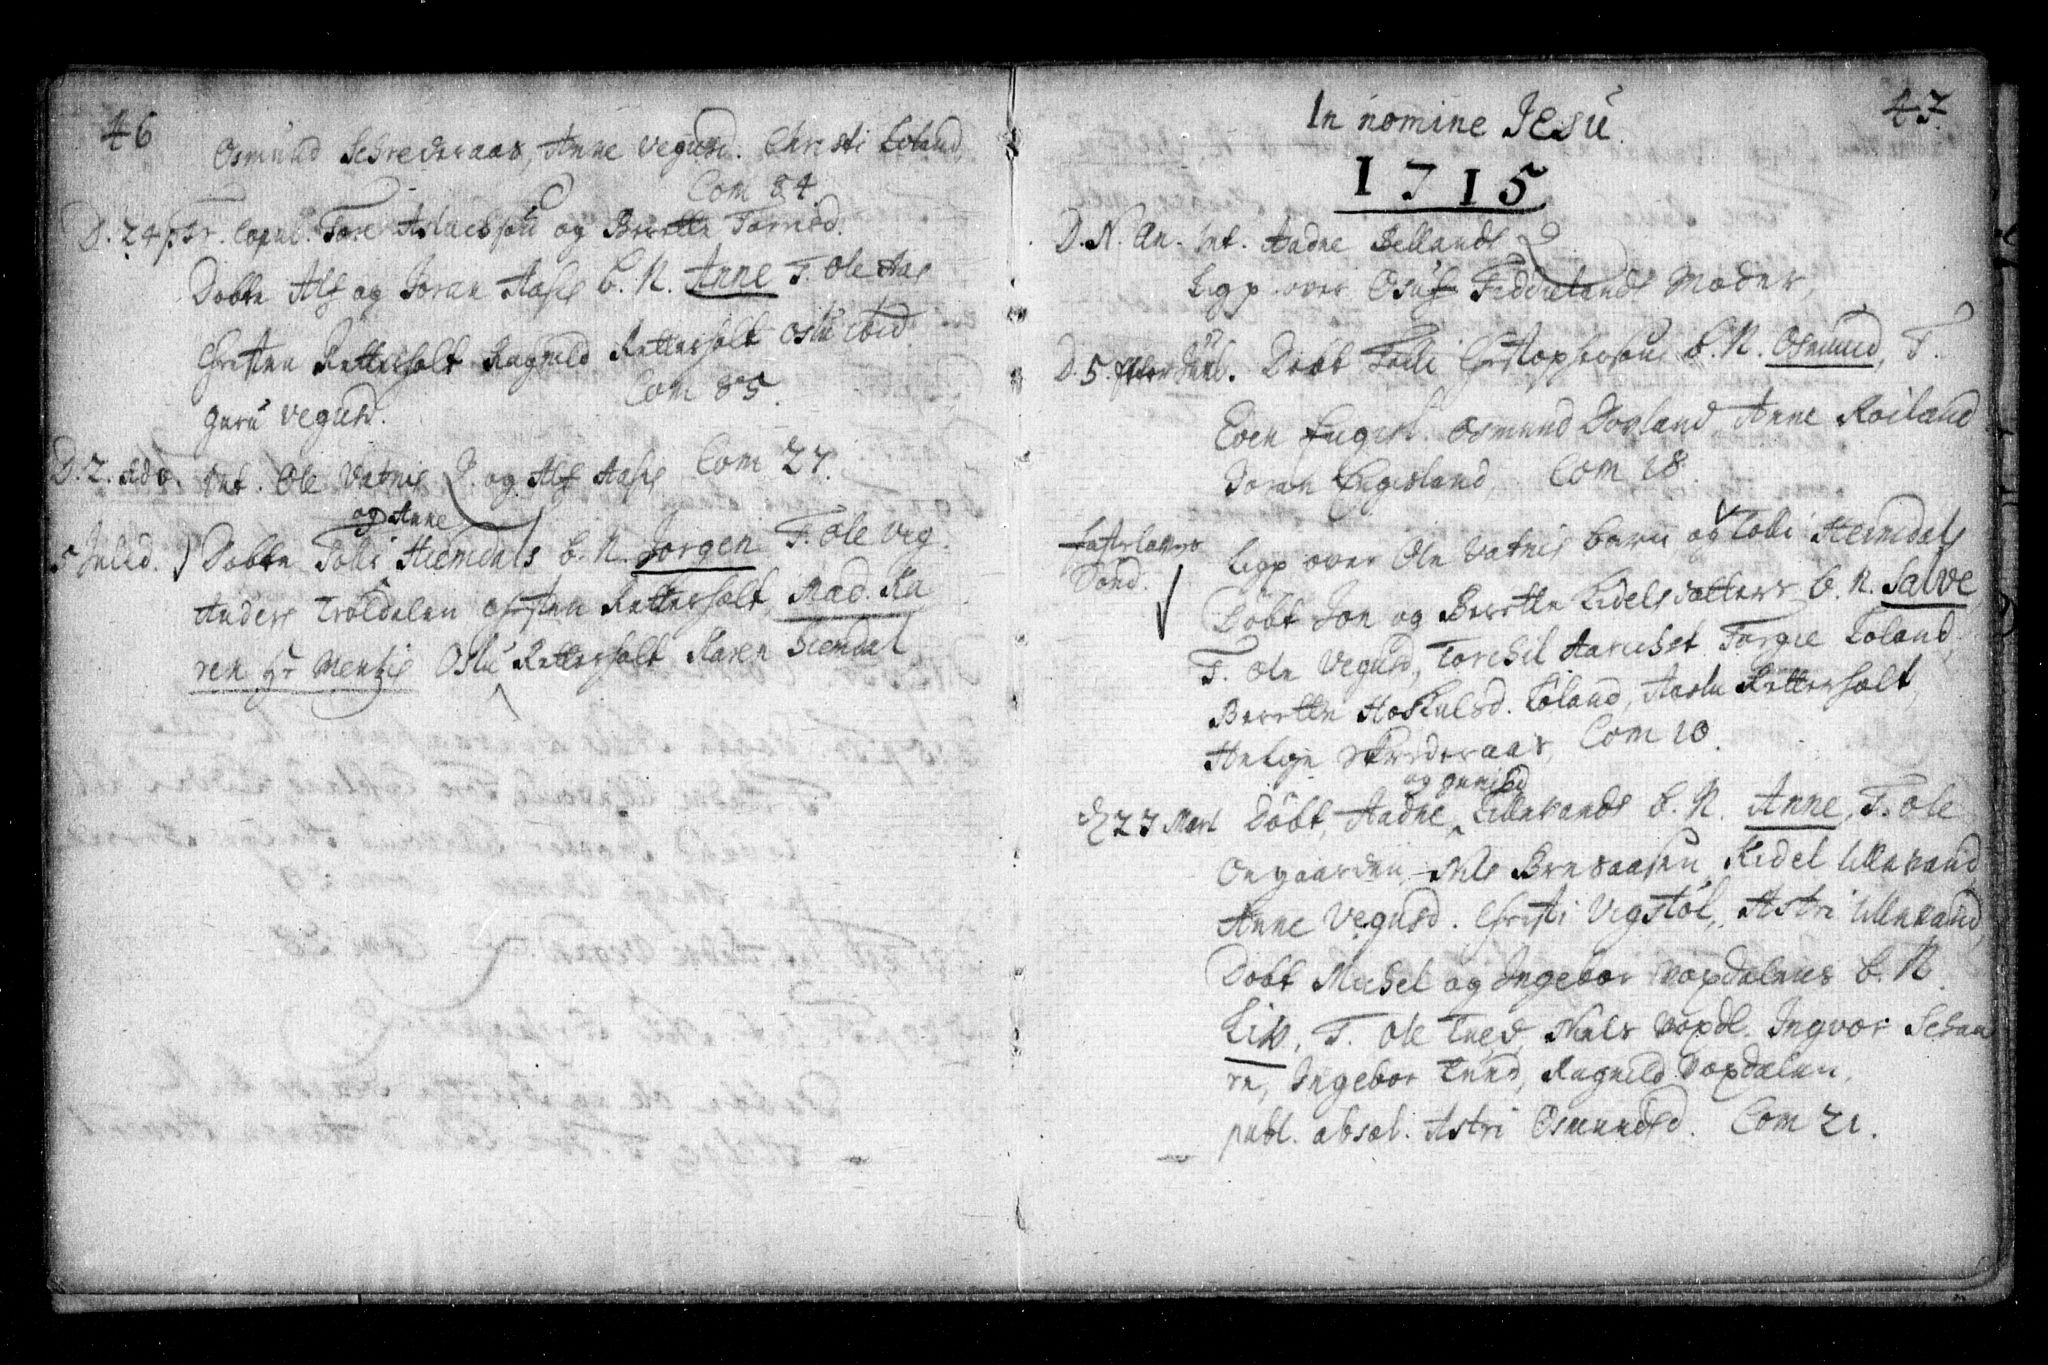 46
Osmund Schrederaas, Anne Vegusd. Christi Loland,
Com 84.
D. 24 p. Tr. Copul. Tore Aslachsøn og Berette Torrisd.
Døbte Alf og Joran Aases b. N. Anne T. Ole Aas
Christen Retterholt Ragnild Retterholt Oslu ibid.
Guru Vegusd. Com 85.
D. 2. Adv. Int. Ole Vatnes Q. og Alf Aases Com 27.
og Anne
5 Juled. Døbte Tolli Hiemdals b. N. Jørgen T. Ole Veg.
Anders Troldalen Christen Retterholt, Mad. Ka
ren Hr Mentzis Oslu Retterholt Karen Hiemdal
47.
In nomine Jesu.
1715
D. N. An. Int. Aadne Bellands Q
Ligp over Moder,
D. 5. efter Juul. Døbt Tolli Christophersøns b. N. Osmund, T.
Even Engesl. Osmund Dovland Anne Røiland
Joran Engesland, Com 18.
Fastelavns
Sønd.
Ligp over Ole Vatnes barn og Tolli Heimdals
Døbt Jon og Berette Kidelsdatters b. N. Salve,
T. Ole Vegusd, Torchil Torgie Loland,
Berette Hoskulsd. Loland, Aaslu Retterholt,
Helge Skrederaas, Com 10.
og Gunild
d 27 Mart Døbt, Aadne Lillevands b. N. Anne, T. Ole
Oegaarden, Nils Brevaasen, Kidel Lillevand
Anne Vegusd. Christi Vegstøl, Astri Lillevand,
Døbt Michel og Ingebor Vopdalens b. N.
Liv, T. Ole Tved, Niels Vopdl. Ingvor Schaa
re, Ingebor Tued, Ragnild Vopdalen,
publ. absol. Astri Osmundsd. Com 21.